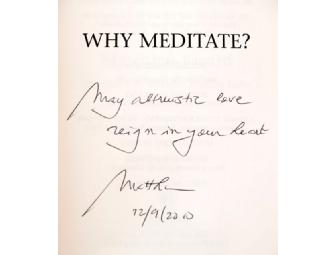 WHY MEDITATE?
May altruistic love
reign in your heart
Matthieu
12/9/2010